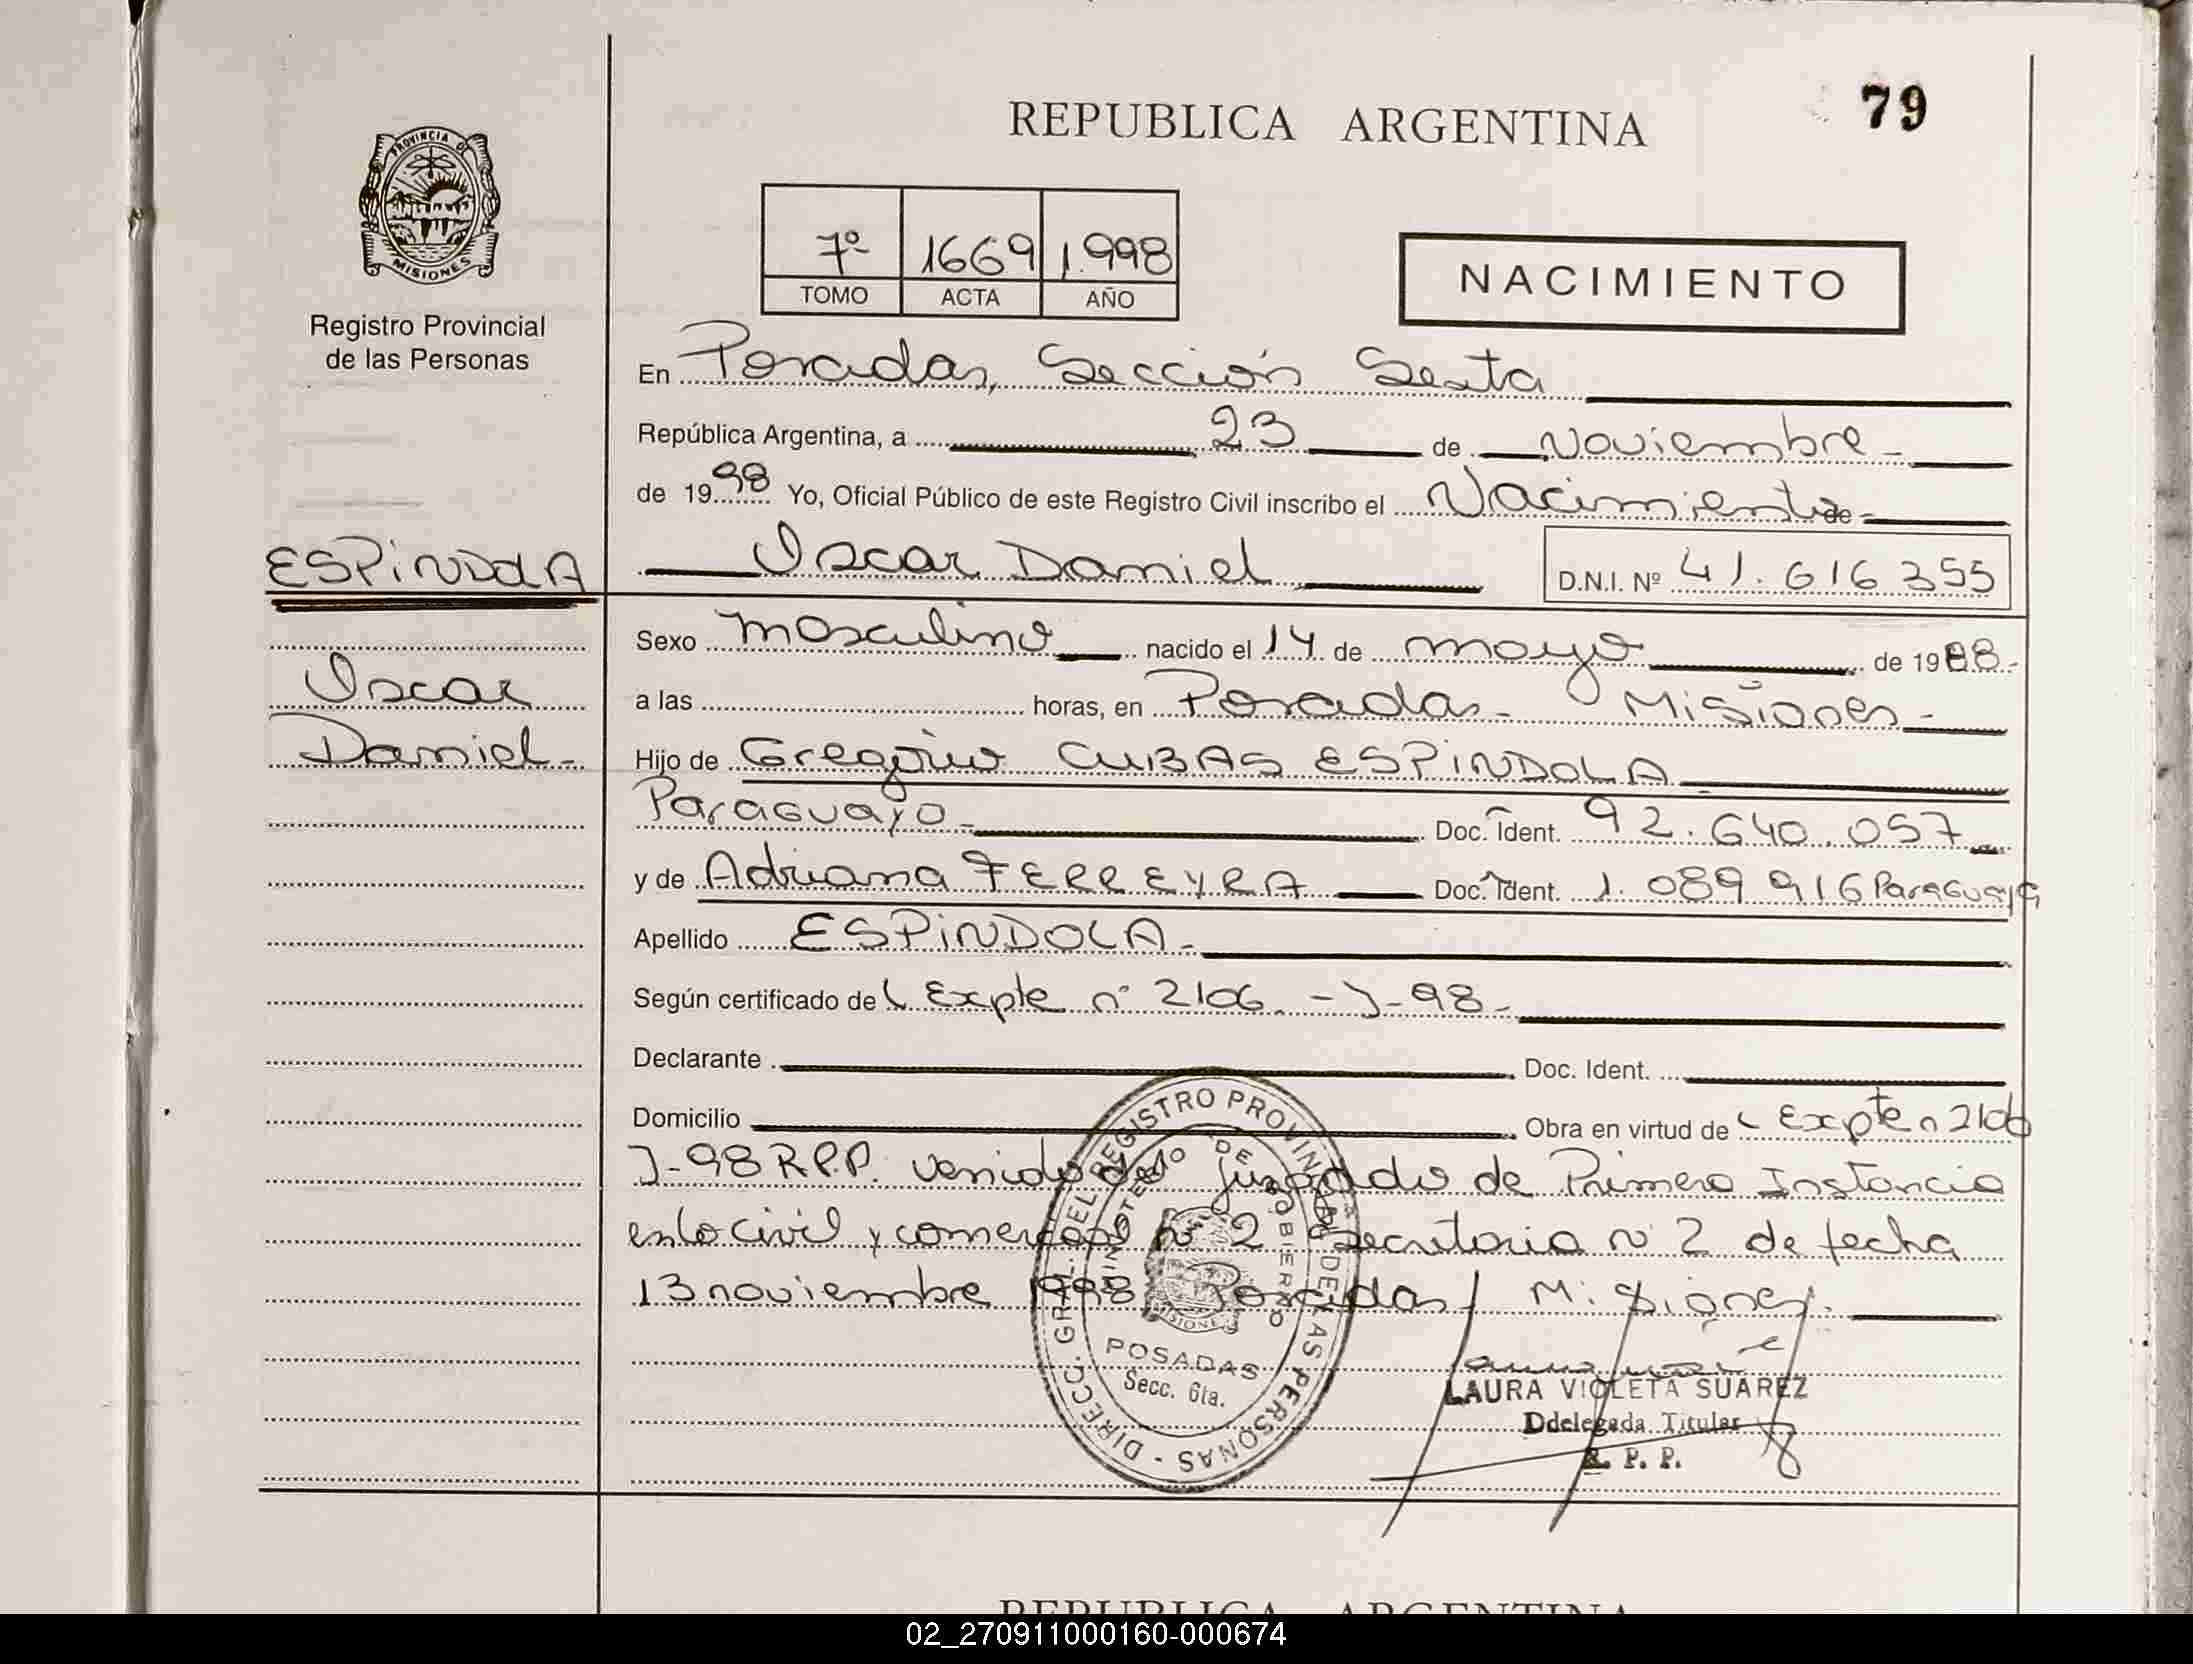 REPUBLICA ARGENTINA
79
PROVINCIA DE
MISIONES
Registro Provincial
de las Personas
7º 1669 1.998
TOMO ACTA AÑO
NACIMIENTO
En Posadas, Sección Sexta
República Argentina, a 23 de Noviembre
de 1998 Yo, Oficial Público de este Registro Civil inscribo el Nacimiento de
ESPiNDOLA
Oscar Daniel D.N.I. Nº 41.616355
Sexo masculino nacido el 14 de mayo de 1988.-
Oscar
a las horas, en Posadas - Misiones -
Daniel -
Hijo de Gregorio CUBAS ESPiNDOLA
Paraguayo - Doc. Ident. 92.640.057
y de Adriana FERREYRA Doc. Ident. 1.089 916 Paraguaya
Apellido ESPiNDOLA -
Según certificado de Expte nº 2106. - J - 98 -
Declarante Doc. Ident.
Domicilio Obra en virtud de Expte n 2106
J-98 R.P.P. venido del Juzgado de Primera Instancia
en lo Civil y comercial nº 2 Secretaria nº 2 de fecha
13 noviembre 1998 Posadas Misiones.
DIRECC. GRAL. DEL REGISTRO PROVINCIAL DE LAS PERSONAS -
MINISTERIO DE GOBIERNO
MISIONES
POSADAS
Secc. 6ta.
LAURA VIOLETA SUAREZ
Ddelegada Titular
R. P. P.
REPUBLICA ARGENTINA
02_270911000160-000674